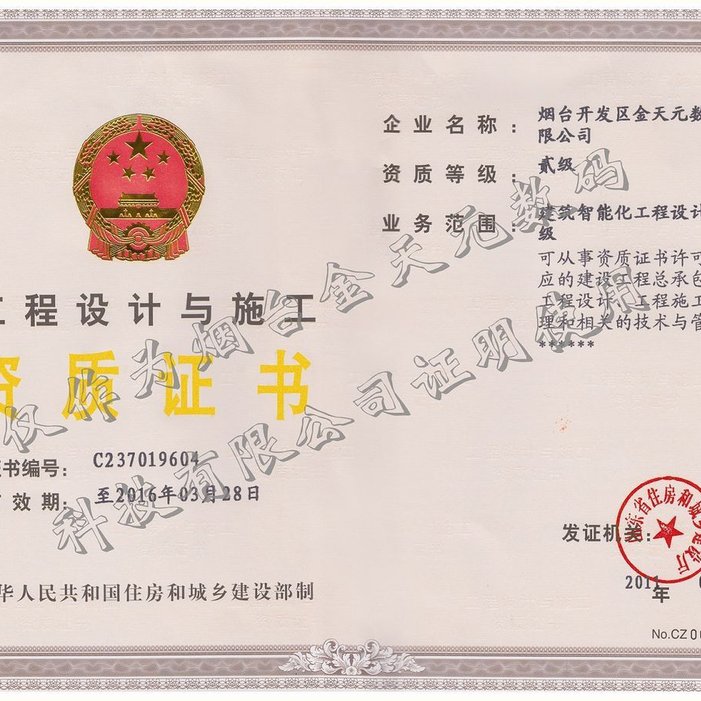 工程设计与施工
资质证书
证书编号： C237019604
有效期： 至2016年03月28日
中华人民共和国住房和城乡建设部制
企业名称： 烟台开发区金天元数
限公司
资质等级： 贰级
业务范围： 建筑智能化工程设计
级
可从事资质证书许可
应的建设工程总承包
工程设计、工程施工
理和相关的技术与管
******
发证机关：
山东省住房和城乡建设厅
2011 年
No.CZ
仅作为烟台金天元数码
科技有限公司证明使用